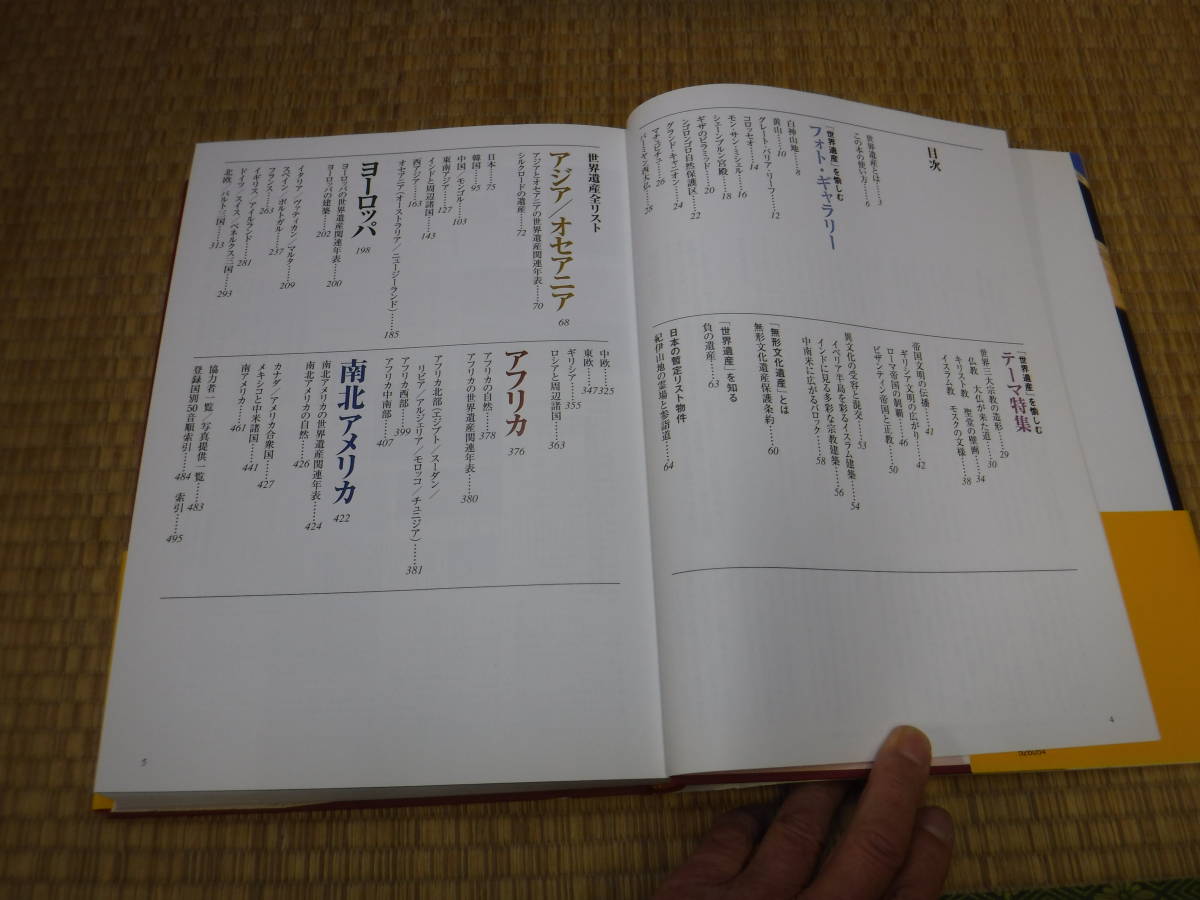 目次
世界遺産とは……3
この本の使い方……6
「世界遺産」を愉しむ
フォト・ギャラリー
白神山地……8
黄山……10
グレート・バリア・リーフ……12
コロッセオ……14
モン・サン・ミシェル……16
シェーンブルン宮殿……18
ギザのピラミッド……20
ンゴロンゴロ自然保護区……22
グランド・キャニオン……24
マチュピチュ……26
バーミヤン西大仏……28
「世界遺産」を愉しむ
テーマ特集
世界三大宗教の造形……29
仏教 大仏が来た道……30
キリスト教 聖堂の壁画……34
イスラム教 モスクの文様……38
帝国文明の伝播……41
ギリシア文明の広がり……42
ローマ帝国の制覇……46
ビザンティン帝国と正教……50
異文化の受容と混交……53
イベリア半島を彩るイスラム建築……54
インドに見る多彩な宗教建築……56
中南米に広がるバロック……58
「無形文化遺産」とは
無形文化遺産保護条約……60
「世界遺産」を知る
負の遺産……63
日本の暫定リスト物件
紀伊山地の霊場と参詣道……64
4
世界遺産全リスト
アジア／オセアニア 68
アジアとオセアニアの世界遺産関連年表……70
シルクロードの遺産……72
日本……75
韓国……95
中国／モンゴル……103
東南アジア……127
インドと周辺諸国……143
西アジア……163
オセアニア（オーストラリア／ニュージーランド）……185
ヨーロッパ 198
ヨーロッパの世界遺産関連年表……200
ヨーロッパの建築……202
イタリア／ヴァティカン／マルタ……209
スペイン／ポルトガル……237
フランス……263
イギリス／アイルランド……281
ドイツ／スイス／ベネルクス三国……293
北欧／バルト三国……313
中欧……325
東欧……347
ギリシア……355
ロシアと周辺諸国……363
アフリカ 376
アフリカの自然……378
アフリカの世界遺産関連年表……380
アフリカ北部（エジプト／スーダン／
リビア／アルジェリア／モロッコ／チュニジア）……381
アフリカ西部……399
アフリカ中南部……407
南北アメリカ 422
南北アメリカの世界遺産関連年表……424
南北アメリカの自然……426
カナダ／アメリカ合衆国……427
メキシコと中米諸国……441
南アメリカ……461
協力者一覧／写真提供一覧……483
登録国別50音順索引……484 索引……495
5